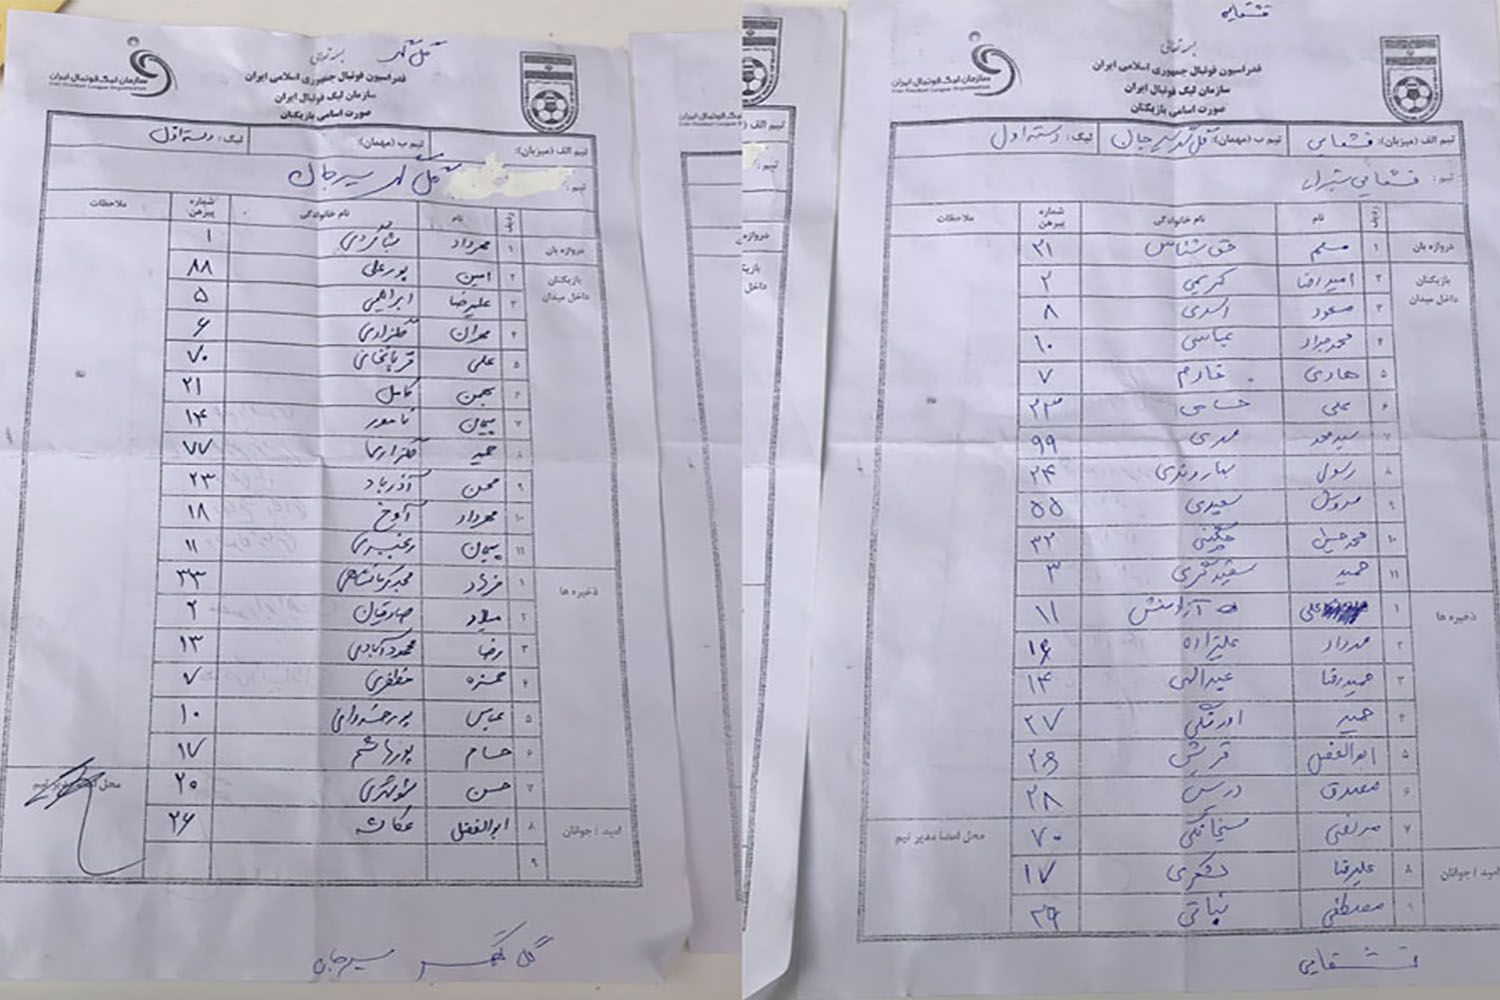 گل گهر
بسمه تعالی
فدراسیون فوتبال جمهوری اسلامی ایران
سازمان لیگ فوتبال ایران
سازمان لیگ فوتبال ایران
صورت اسامی بازیکنان
تیم الف (میزبان): تیم ب (مهمان): لیگ: دسته اول
تیم: گل گهر سیرجان
ردیف نام نام خانوادگی شماره پیرهن ملاحظات
دروازه بان ۱ مهرداد بشاگردی ۱
بازیکنان داخل میدان ۲ امین پورعلی ۸۸
۳ علیرضا ابراهیمی ۵
۴ مهران گلزاری ۶
۵ علی قربانخانی ۷۰
۶ بهمن کامل ۲۱
۷ پیمان نامور ۱۴
۸ حمید گلزاری ۷۷
۹ محسن آذرباد ۲۳
۱۰ مهرداد آوخ ۱۸
۱۱ پیمان رنجبری ۱۱
ذخیره ها ۱ فرزاد محمدکرمانشاهی ۳۳
۲ میلاد صادقیان ۲
۳ رضا محمودآبادی ۱۳
۴ حمزه مظفری ۷
۵ عباس پورخسروانی ۱۰
۶ حسام پورهاشم ۱۷
۷ حسن شوشتری ۲۰
امید / جوانان ۸ ابوالفضل عکاشه ۲۶
۹
محل امضا مدیر تیم
گل گهر سیرجان
قشقایی
بسمه تعالی
فدراسیون فوتبال جمهوری اسلامی ایران
سازمان لیگ فوتبال ایران
سازمان لیگ فوتبال ایران
صورت اسامی بازیکنان
تیم الف (میزبان): قشقایی تیم ب (مهمان): گل گهر سیرجان لیگ: دسته اول
تیم: قشقایی شیراز
ردیف نام نام خانوادگی شماره پیرهن ملاحظات
دروازه بان ۱ مسلم حق شناس ۲۱
بازیکنان داخل میدان ۲ امیررضا کریمی ۲
۳ مسعود اسدی ۸
۴ محمدجواد عباسی ۱۰
۵ هادی خادم ۷
۶ علی حسامی ۲۳
۷ سیدمحمد مهدی ۹۹
۸ رسول بهاروندی ۲۴
۹ سروش سعیدی ۵۵
۱۰ محمدحسین چگنی ۳۲
۱۱ حمید سفیدگری ۳
ذخیره ها ۱ علی آزادمنش ۱۱
۲ مهرداد علیزاده ۱۶
۳ حمیدرضا عبدالهی ۱۴
۴ حمید اورنگی ۲۷
۵ ابوالفضل قریشی ۲۶
۶ مصدق درسی ۲۸
۷ مرتضی ۷۰
امید / جوانان ۸ علیرضا ۱۷
۹ مصطفی نباتی ۲۹
محل امضا مدیر تیم
قشقایی